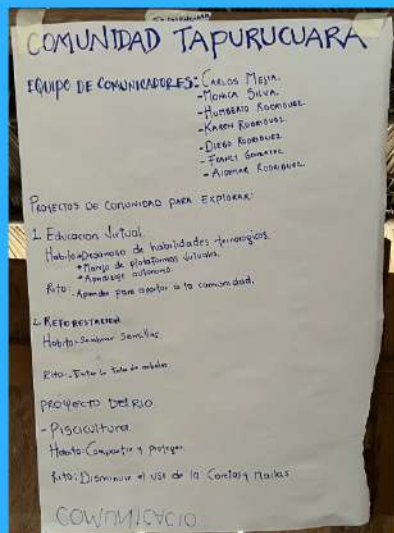 COMUNIDAD TAPURUCUARA
EQUIPO DE COMUNICADORES: CARLOS MEJIA.
- MONICA SILVA.
- HUMBERTO RODRIGUEZ
- KAREN RODRIGUEZ
- DIEGO RODRIGUEZ
- FRANCY GONZALEZ
- ALDEMAR RODRIGUEZ
PROYECTOS DE COMUNIDAD PARA EXPLORAR:
1. Educacion Virtual.
Habito: Desarrollo de habilidades tecnologicas
* Manejo de plataformas virtuales.
* Aprendizaje autonomo
Rito: Aprender para aportar a la comunidad.
2. REFORESTACION
Habito: Sembrar Semillas
Rito: Evitar la tala de arboles
PROYECTO DEL RIO
- Piscicultura
Habito: Compartir y proteger
Rito: Disminuir el uso de la y Mallas